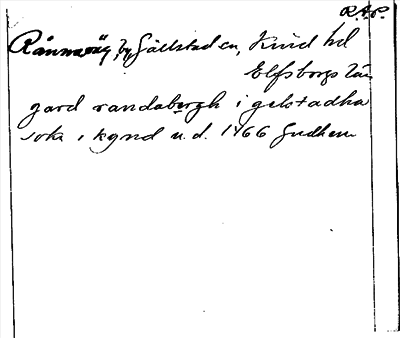 R.A.P.
by, Gällstad en, Kind hd
Elfsborgs län
gard randabergh i gelstadha
sokn i kynd u.d. 1466 Gudhem